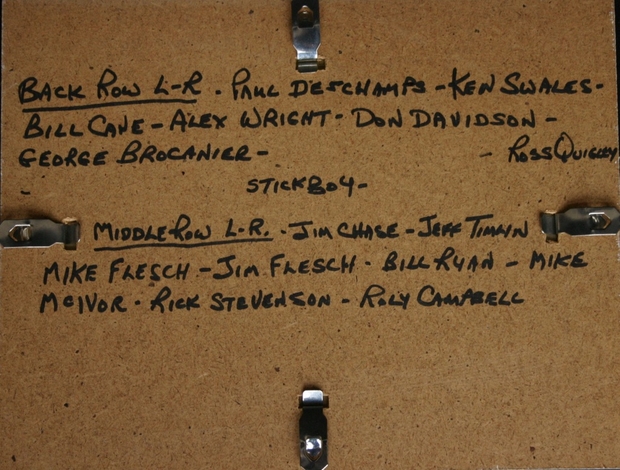 BACK ROW L-R. PAUL DESCHAMPS - KEN SWALES -
BILL CANE - ALEX WRIGHT - DON DAVIDSON -
GEORGE BROCANIER - - ROSS QUIGLEY
- STICKBOY -
MIDDLE ROW L-R. - JIM CHASE - JEFF TIMLIN
MIKE FLESCH - JIM FLESCH - BILL RYAN - MIKE
MCIVOR - RICK STEVENSON - ROLY CAMPBELL